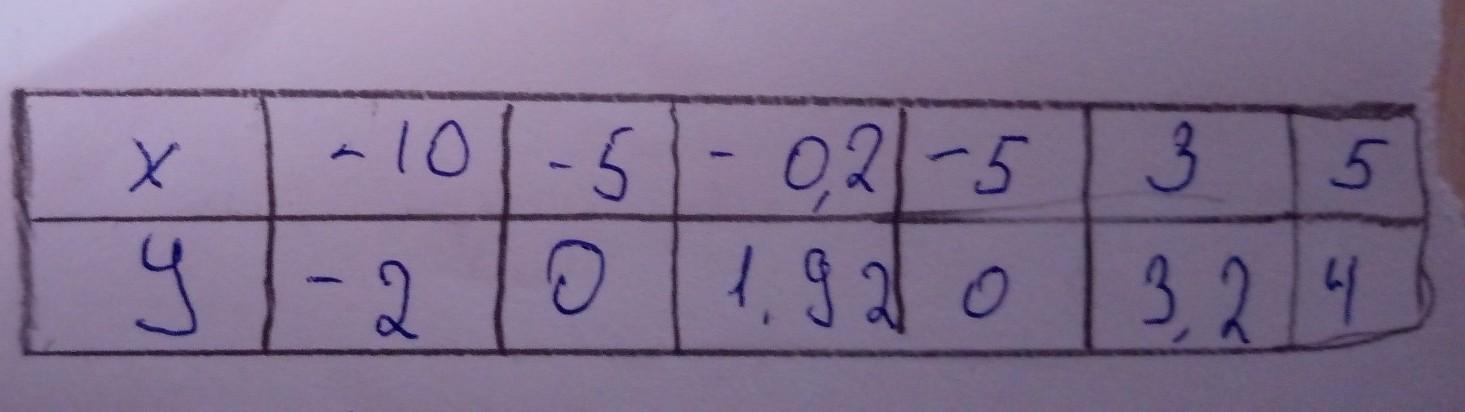 x -10 -5 -0,2 -5 3 5
y -2 0 1.92 0 3,2 4